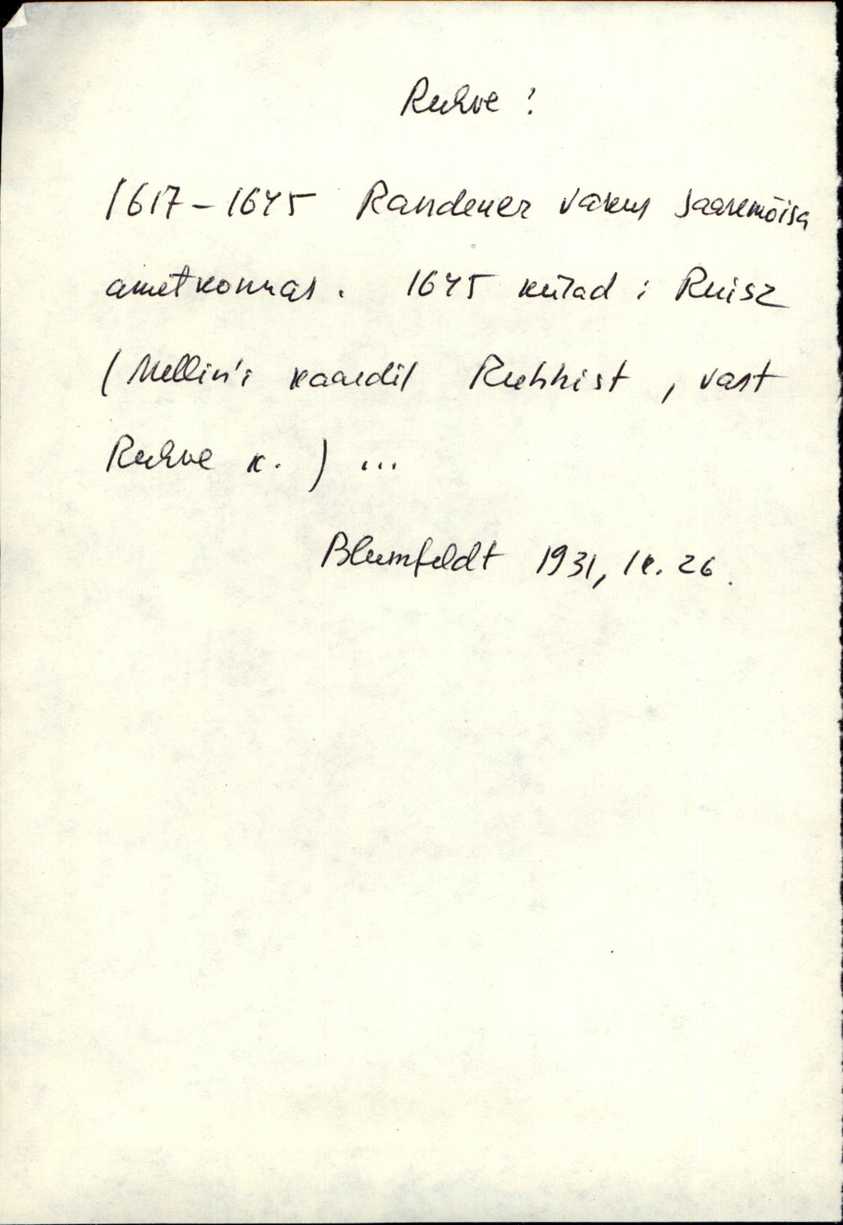 Ruhve !
1617-1645 Randener vakus Saaremõisa
ametkonnas. 1645 külad : Ruisz
(Mellin'i kaardil Ruhhist, vast
Ruhve k.) ...
Blumfeldt 1931, lk. 26.